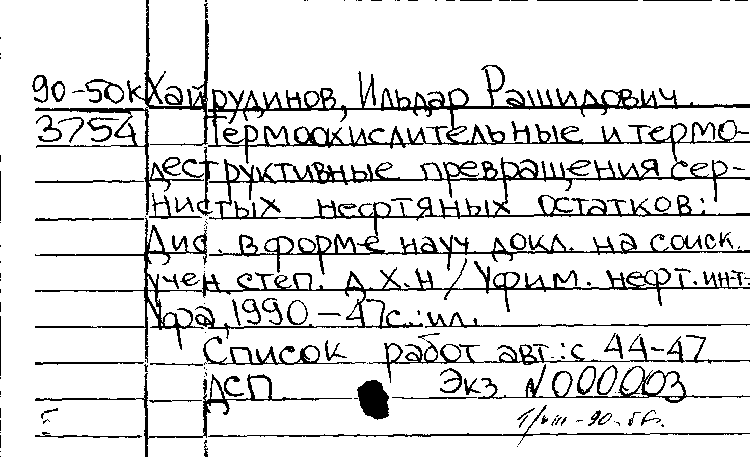 90-50К Хайрудинов, Ильдар Рашидович.
3754 Термоокислительные и термо-
деструктивные превращения сер-
нистых нефтяных остатков:
Дис. в форме науч. докл. на соиск.
учен. степ. д.х.н / Уфим. нефт. ин-т.-
Уфа, 1990.-47с.:ил.
Список работ авт.: с 44-47
ДСП Экз N000003